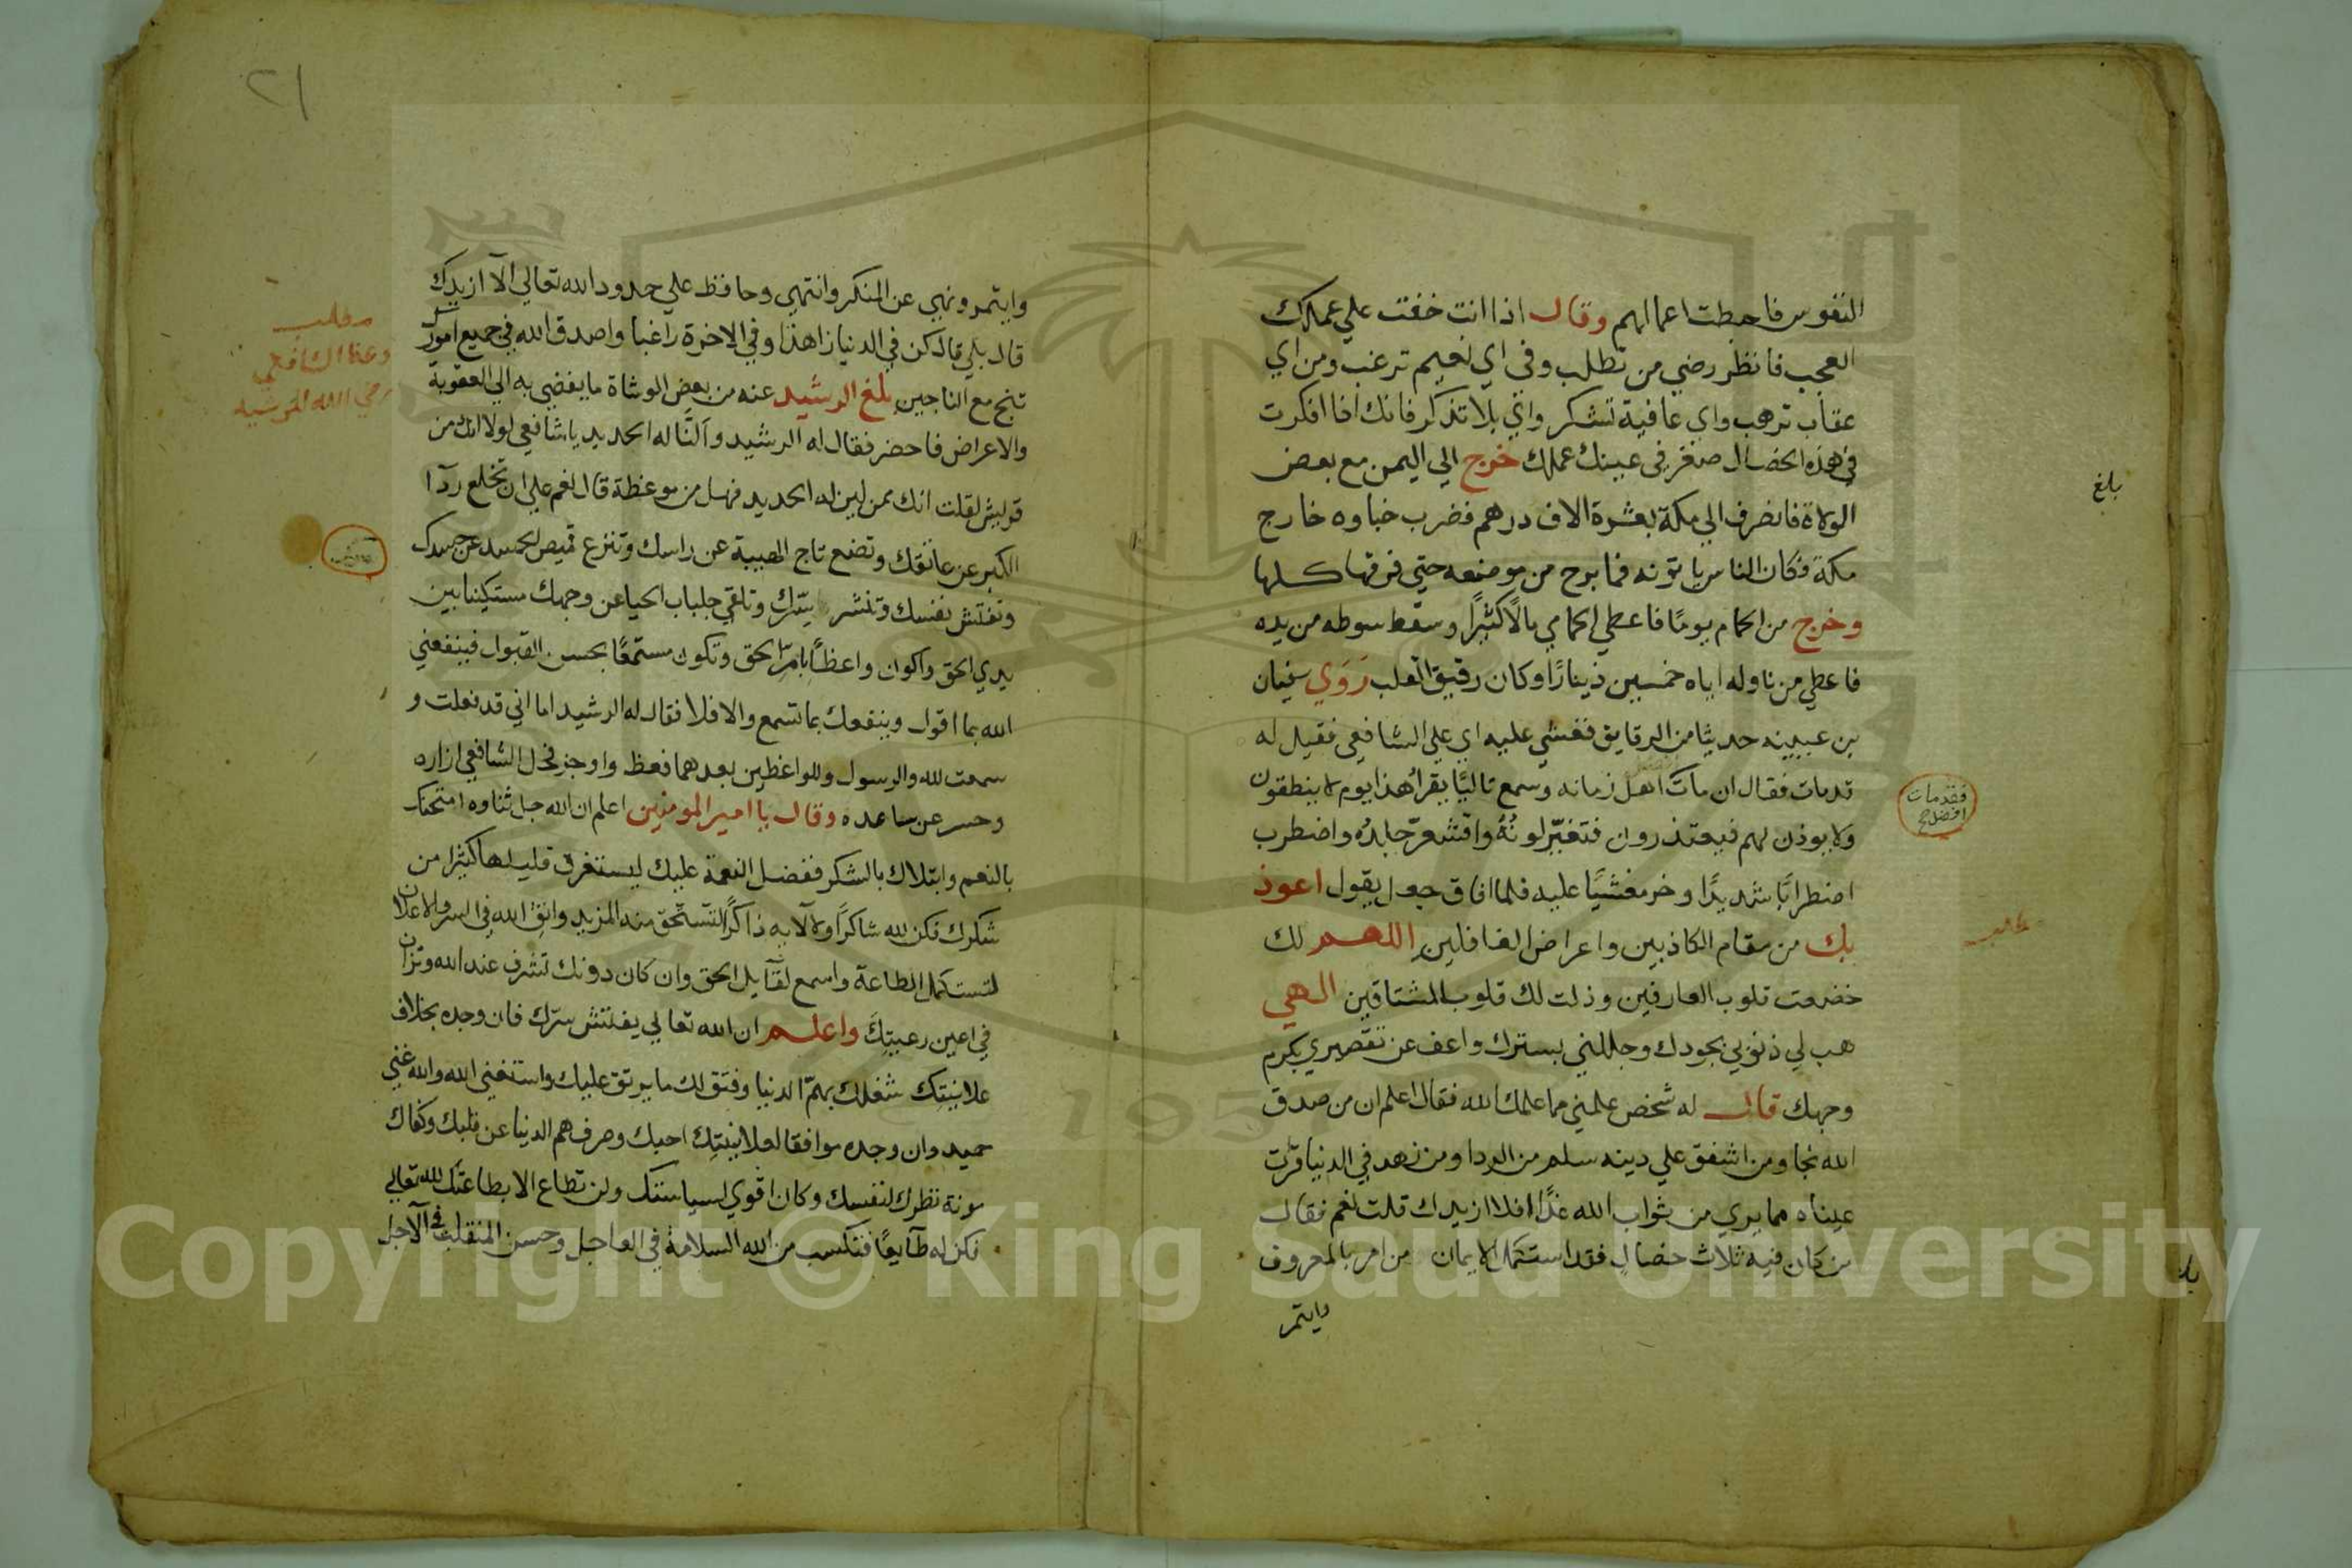 النفوس فاحبطت اعمالهم وقال اذا انت خفت علي عملك
العجب فانظر رضي من تطلب وفي اي نعيم ترغب ومن اي
عقاب ترهب واي عافية تشكر واي بلا تذكر فانك اذا افكرت
في هذه الخصال صغر في عينك عملك خرج الي اليمن مع بعض
بلغ
الولاة فانصرف الي مكة بعشرة الاف درهم فضرب خباوه خارج
مكة فكان الناس ياتونه فما برح من موضعه حتي فرقها كلها
وخرج من الحمام يوما فاعطي الحمامي مالا كثيرا وسقط سوطه من يده
فاعطي من ناوله اياه خمسين دينارا وكان رقيق القلب روي سفيان
بن عيينه حديثا من الرقايق فغشي عليه اي علي الشافعي فقيل له
قد مات فقال ان مات اهل زمانه وسمع تاليا يقرا هذا يوم لا ينطقون
فقد مات
افضل صح
ولا يوذن لهم فيعتذرون فتغير لونه واقشعر جلده واضطرب
اضطرابا شديدا وخر مغشيا عليه فلما افاق جعل يقول اعوذ
بك من مقام الكاذبين واعراض الغافلين اللهم لك
خضعت قلوب العارفين وذلت لك قلوب المشتاقين الهي
هب لي ذنوبي بجودك وجللني بسترك واعف عن تقصيري بكرم
وجهك قال له شخص علمني مما علمك الله فقال اعلم ان من صدق
الله نجا ومن اشفق علي دينه سلم من الردا ومن زهد في الدنيا قرت
عيناه مما يري من ثواب الله غدا افلا ازيدك قلت نعم فقال
من كان فيه ثلاث خصال فقد استكمل الايمان من امر بالمعروف
وايتمر
٢١
وايتمر ونهي عن المنكر وانتهي وحافظ علي حدود الله تعالي الا ازيدك
قال بلي قال كن في الدنيا زاهدا وفي الاخرة راغبا واصدق الله في جميع امورك
مطلب
وعظ الشافعي
رضي الله الرشيد
تنج مع الناجين بلغ الرشيد عنه من بعض الوشاة ما يفضي به الي العقوبة
والاعراض فاحضر فقال له الرشيد وآلنا له الحديد يا شافعي لولا انك من
قريش لقلت انك ممن لين له الحديد فهل من موعظة قال نعم علي ان تخلع ردآ
الكبر عن عاتقك وتضع تاج الهيبة عن راسك وتنزع قميص عن جسدك
وتفتش نفسك وتنشر سرك وتلقي جلباب الحيا عن وجهك مستكينا بين
يدي الحق واكون واعظا بامر الحق وتكون مستمعا بحسن القبول فينفعني
الله بما اقول وينفعك بما تسمع والا فلا فقال له الرشيد اما اني قد فعلت و
سمعت لله والرسول وللواعظين بعدهما فعظ واوجز فحل الشافعي ازاره
وحسر عن ساعده وقال يا امير المومنين اعلم ان الله جل ثناوه امتحنك
بالنعم وابتلاك بالشكر ففضل النعمة عليك ليستغرق قليلها كثيرا من
شكرك فكن لله شاكرا ولآلايه ذاكرا لتستحق منه المزيد واتق الله في السر والاعلان
لتستكمل الطاعة واسمع لقايل الحق وان كان دونك تشرف عند الله وتزان
في اعين رعيتك واعلم ان الله تعالي يفتش سرك فان وجده بخلاف
علانيتك شغلك بهم الدنيا وفتق لك ما يرتق عليك واستغني الله والله غني
حميد وان وجده موافقا لعلانيتك احبك وصرف هم الدنيا عن قلبك وكفاك
مونة نظرك لنفسك وكان اقوي لسياستك ولن تطاع الا بطاعتك لله تعالي
فكن له طآيعا فتكسب من الله السلامة في العاجل وحسن المنقلب في الآجل
Copyright © King Saud University
195